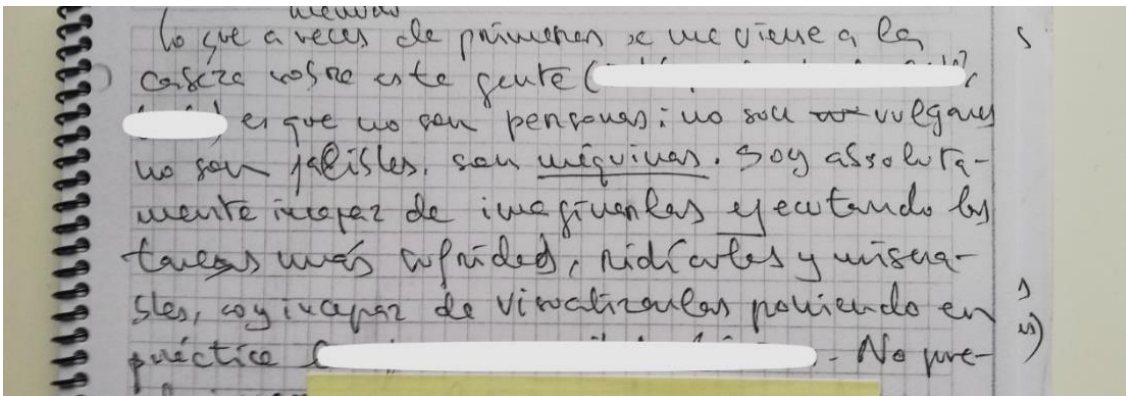 menudo
lo que a veces de primeras se me viene a la
cabeza sobre esta gente (
es que no son personas: no son vulgares
no son falibles, son máquinas. Soy absoluta-
mente incapaz de imaginarlas ejecutando las
tareas más sufridas, ridículas y misera-
bles, soy incapaz de visualizarlas poniendo en
práctica
. No pre-